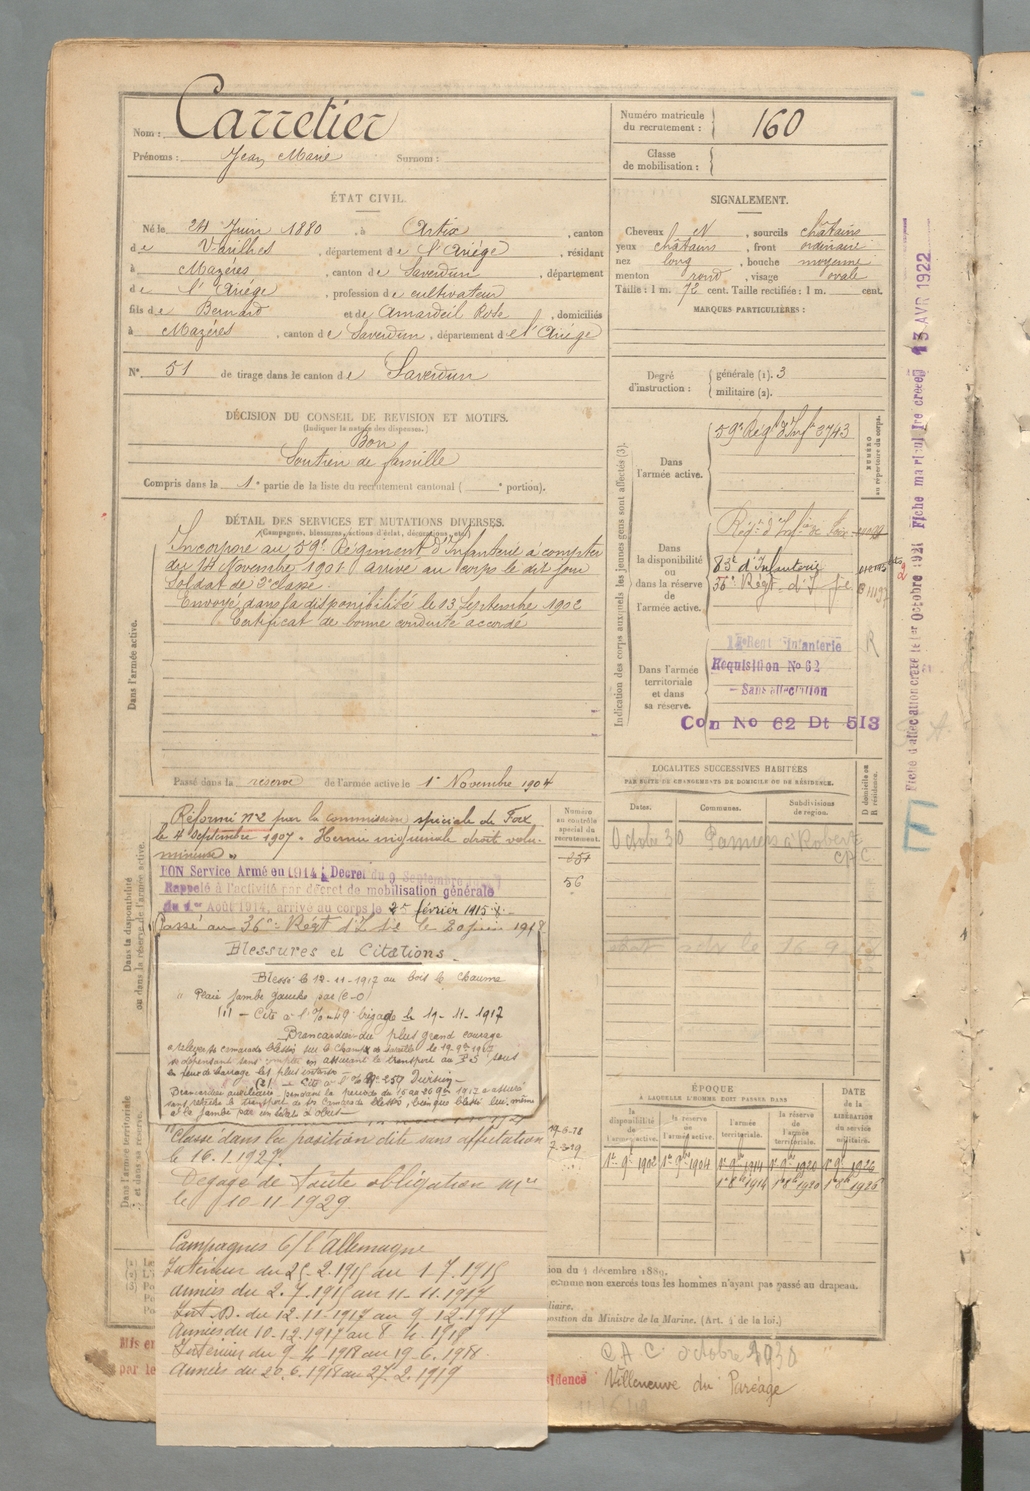 Nom : Carretier
Prénoms : Jean Marie Surnom :
Numéro matricule du recrutement : 160
Classe de mobilisation :
ÉTAT CIVIL.
Né le 24 Juin 1880, à Artix, canton
de Varilhes, département de l'Ariège, résidant
à Mazères, canton de Saverdun, département
de l'Ariège, profession de cultivateur
fils de Bernard et de Amardeil Rose, domiciliés
à Mazères, canton de Saverdun, département de l'Ariège
N° 51 de tirage dans le canton de Saverdun
SIGNALEMENT.
Cheveux N, sourcils châtains
yeux châtains, front ordinaire
nez long, bouche moyenne
menton rond, visage ovale
Taille : 1 m. 72 cent. Taille rectifiée : 1 m. cent.
MARQUES PARTICULIÈRES :
Degré d'instruction : générale (1). 3
militaire (2).
DÉCISION DU CONSEIL DE REVISION ET MOTIFS.
(Indiquer la nature des dispenses.)
Bon
Soutien de famille
Compris dans la 1e partie de la liste du recrutement cantonal ( e portion).
DÉTAIL DES SERVICES ET MUTATIONS DIVERSES.
(Campagnes, blessures, actions d'éclat, décorations, etc.)
Dans l'armée active.
Incorporé au 59e Régiment d'Infanterie à compter
du 14 Novembre 1901 arrivé au corps le dit jour
Soldat de 2e classe.
Envoyé dans la disponibilité le 13 Septembre 1902
Certificat de bonne conduite accordé
Passé dans la réserve de l'armée active le 1er Novembre 1904
Indication des corps auxquels les jeunes gens sont affectés (3).
NUMÉRO au répertoire du corps.
Dans l'armée active.
59e Régt d'Infie 3743
Dans la disponibilité ou dans la réserve de l'armée active.
Régt d'Infie de
83e d'Infanterie
36e Régt d'Ife
Dans l'armée territoriale et dans sa réserve.
Infanterie
Requisition No 62
Sans affectation
Con No 62 Dt 513
R
13 AVR 1922
Fiche d'affectation créée le 1er Octobre 1921 Fiche matricule créée
Dans la disponibilité ou dans la réserve de l'armée active.
Réformé n°2 par la commission spéciale de Foix
le 4 Septembre 1907. Hernie inguinale droite volumineuse
BON Service Armé en 1914 ; Décret du 9 Septembre
Rappelé à l'activité par décret de mobilisation générale
du 1er Août 1914, arrivé au corps le 25 février 1915
Passé au 36e Régt d'Ife le 20 juin 1918
Numéro au contrôle spécial du recrutement.
56
Blessures et Citations
Blessé le 12-11-1917 au bois le Chaume
Plaie jambe gauche par (e-o)
(1) - Cité à l'O/n 49 brigade le 19-11-1917
Brancardier du plus grand courage
a relevé ses camarades blessés sur le champ de bataille le
se dépensant sans compter en assurant le transport au P.S sous
les feux de barrage les plus intenses
(2) - Cité à l'O/ 259 Division
Brancardier auxiliaire, pendant la période du 16 au 26 9bre 1917 a assuré
sans relâche le transport de ses camarades blessés, bien que blessé lui-même
à la jambe par un éclat d'obus
Classé dans la position dite sans affectation
le 16.1.1927.
Dégagé de toute obligation mre
le 10-11-1929.
Campagnes c/ l'Allemagne
Intérieur du 25-2.1915 au 1-7.1915
Armées du 2.7.1915 au 11-11.1917
Int. B. du 12.11.1917 au 9-12.1917
Armées du 10.12.1917 au 8 4.1918
Intérieur du 9-4.1918 au 19-6.1918
Armées du 20.6.1918 au 27.2.1919
Dans l'armée territoriale et dans sa réserve.
LOCALITÉS SUCCESSIVES HABITÉES
PAR SUITE DE CHANGEMENTS DE DOMICILE OU DE RÉSIDENCE.
Dates. Communes. Subdivisions de région.
D domicile ou R résidence.
Octob 30 Pamiers à Robert
C.A.C.
ÉPOQUE
À LAQUELLE L'HOMME DOIT PASSER DANS
la disponibilité de l'armée active.
la réserve de l'armée active.
l'armée territoriale.
la réserve de l'armée territoriale.
DATE de la LIBÉRATION DU SERVICE MILITAIRE.
1er 9bre 1902 1er 9bre 1904 1er 9bre 1914 1er 9bre 1920 1er 9bre 1926
1er 8bre 1914 1er 8bre 1920 1er 8bre 1926
tion du 4 décembre 1889.
comme non exercés tous les hommes n'ayant pas passé au drapeau.
position du Ministre de la Marine. (Art. 4 de la loi.)
Mis en
par le
sidence
C.A.C. octobre 1930
Villeneuve du Paréage